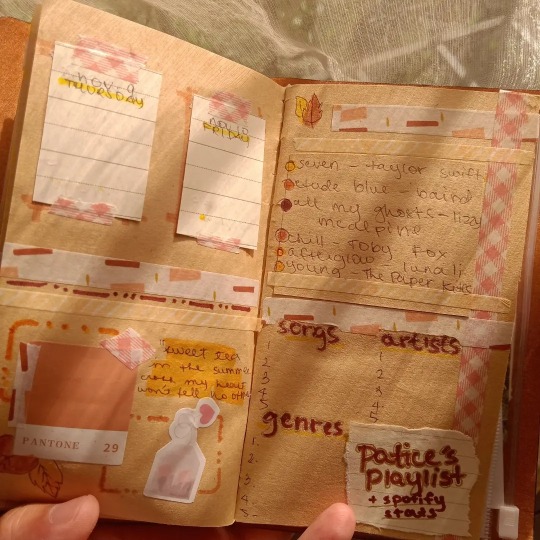 nov. 9
Tuesday
Friday
sweet tea
in the summer
cross my heart
won't tell no other
PANTONE 29
seven - taylor swift
etude blue - baird
all my ghosts - lizzy
mcalpine
chill - Toby Fox
afterglow luna li
young - The Paper Kites
songs
1
2
3
4
5
artists
1
2
3
4
5
genres
1.
2.
3.
4.
5.
Patice's
Playlist
+ spotify
stats